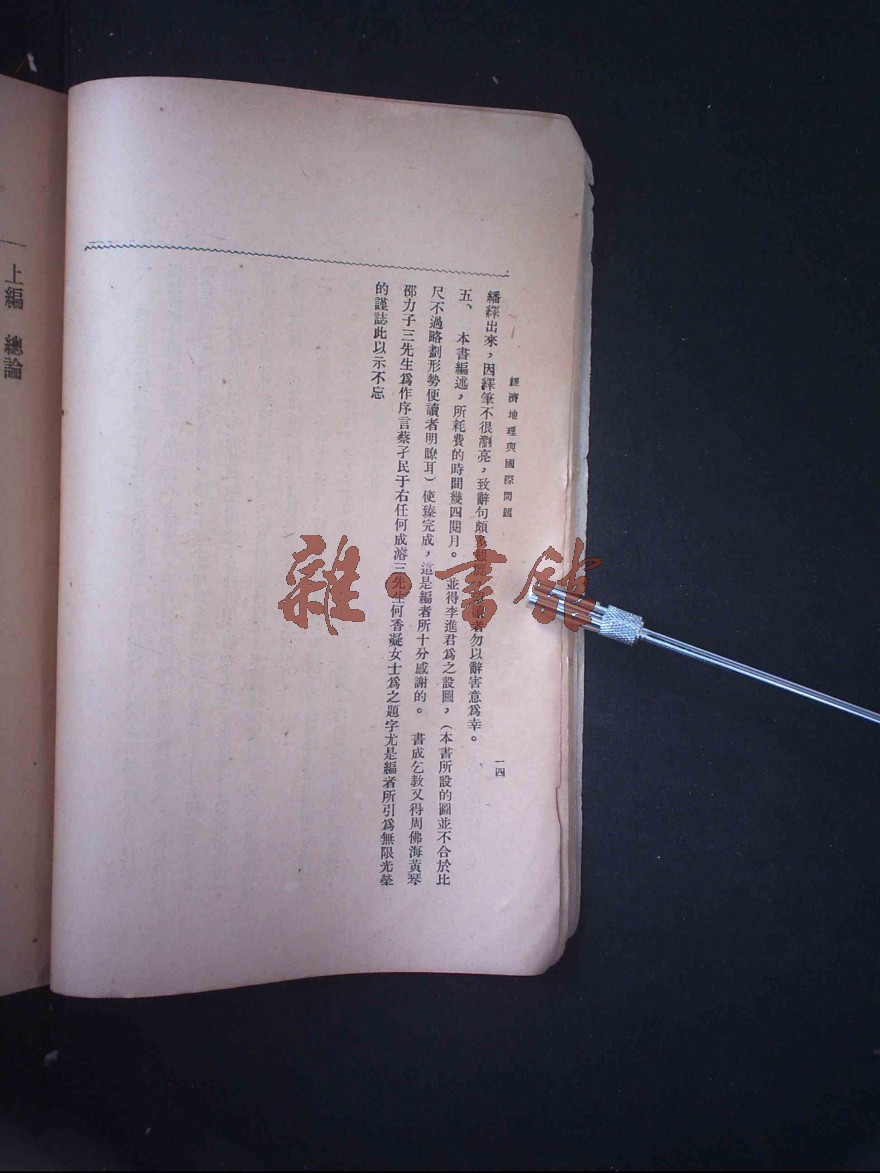 經濟地理與國際問題
一四
繙繹出來，因繹筆不很瀏亮，致辭句頗 勿以辭害意爲幸。
五、 本書編述，所耗費的時間幾四閱月。並得李進君爲之設圖，（本書所設的圖並不合於比
尺不過略劃形勢便讀者明瞭耳）使臻完成，這是編者所十分感謝的。 書成乞敎又得周佛海黃琴
邵力子三先生爲作序言蔡孑民于右任何成濬三先生何香凝女士爲之題字尤是編者所引爲無限光榮
的謹誌此以示不忘
上編 總論
雜·書館